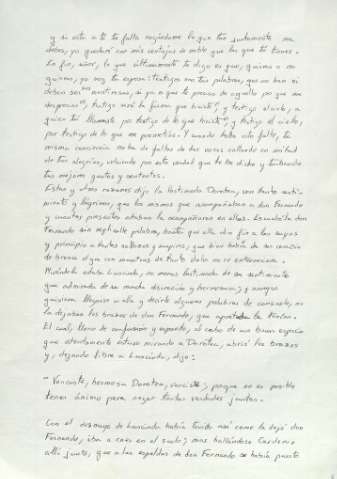 y si esto a ti te falta negándome lo que tan justamente me
debes, yo quedaré con más ventajas de noble que las que tú tienes.
En fin, señor, lo que últimamente te digo es que, quieras o no
quieras, yo soy tu esposa: testigos son tus palabras, que no han ni
deben ser mentirosas, si ya es que te precias de aquello por que me
desprecias; testigo será la firma que hiciste, y testigo el cielo, a
quien tú llamaste por testigo de lo que
por testigo de lo que me prometías. Y cuando todo esto falte, tu
misma conciencia no ha de faltar de dar voces callando en mitad
de tus alegrías, volviendo por esta verdad que te he dicho y turbando
tus mejores gustos y contentos.
Estas y otras razones dijo la lastimada Dorotea, con tanto senti-
miento y lágrimas, que los mismos que acompañaban a don Fernando
y cuantos presentes estaban la acompañaron en ellas. Escuchóla don
Fernando sin replicalle palabra, hasta que ella dio fin a las suyas
y principio a tantos sollozos y suspiros, que bien había de ser corazón
de bronce el que con muestras de tanto dolor no se enterneciera.
Mirándola estaba Luscinda, no menos lastimada de su sentimiento
que admirada de su mucha discreción y hermosura; y aunque
quisiera llegarse a ella y decirle algunas palabras de consuelo, no
la dejaban los brazos de don Fernando, que apretada la tenían.
El cual, lleno de confusión y espanto, al cabo de un buen espacio
que atentamente estuvo mirando a Dorotea, abrió los brazos
y, dejando libre a Luscinda, dijo:
- Venciste, hermosa Dorotea, venciste; porque no es posible
tener ánimo para negar tantas verdades juntas.
Con el desmayo de Luscinda había tenido así como la dejó don
Fernando, iba a caer en el suelo; mas hallándose Cardenio
allí junto, que a las espaldas de don Fernando se había puesto